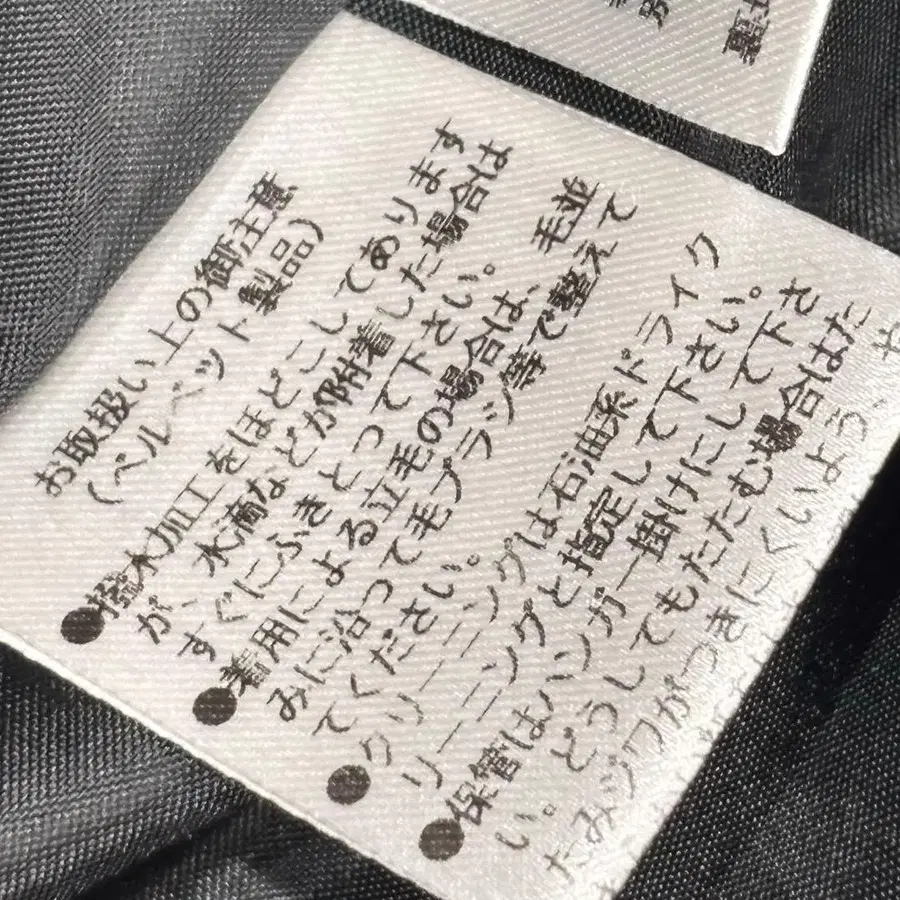 お取扱い上の御注意
(ベルベット製品)
●撥水加工をほどこしてあります
が、水滴などが附着した場合は
すぐにふきとって下さい。
●着用による立毛の場合は、毛並
みに沿って毛ブラシ等で整えて
てください。
●クリーニングは石油系ドライク
リーニングと指定して下さい。
●保管はハンガー掛けにして下さ
い。どうしてもたたむ場合はた
たみジワがつきにくいよう、や